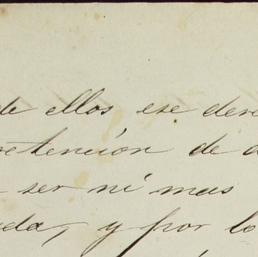 de ellos ese dere
retencion de d
ser ni mas
da, y por lo